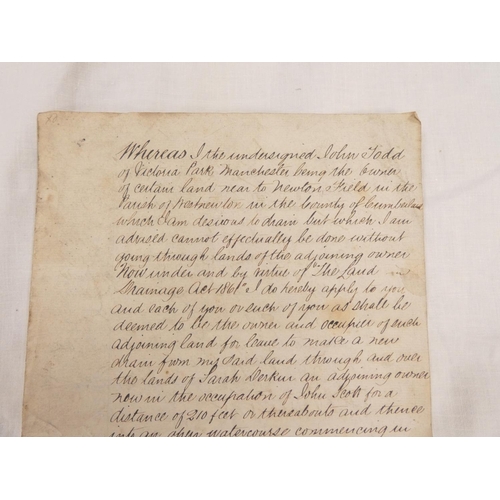 Whereas I the undersigned John Todd
of Victoria Park Manchester being the Owner
of certain land near to Newton Field in the
Parish of Westnewton in the County of Cumberland
which I am desirous to drain but which I am
advised cannot effectually be done without
going through lands of the adjoining owner
Now under and by virtue of "The Land
Drainage Act 1861" I do hereby apply to you
and each of you or such of you as shall be
deemed to be the owner and occupier of such
adjoining land for leave to make a new
drain from my said land through and over
the lands of Sarah an adjoining owner
now in the occupation of John Scott for a
distance of 210 feet or thereabouts and thence
into an open watercourse commencing in